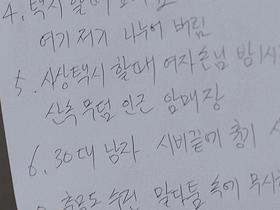 4. 택시 할때
여기 저기 나누어 버림
5. 사상택시 할때 여자손님 밤1시
산속 무덤 인근 암매장
6. 30대 남자 시비끝에 흉기 사
말다툼 속에 무시